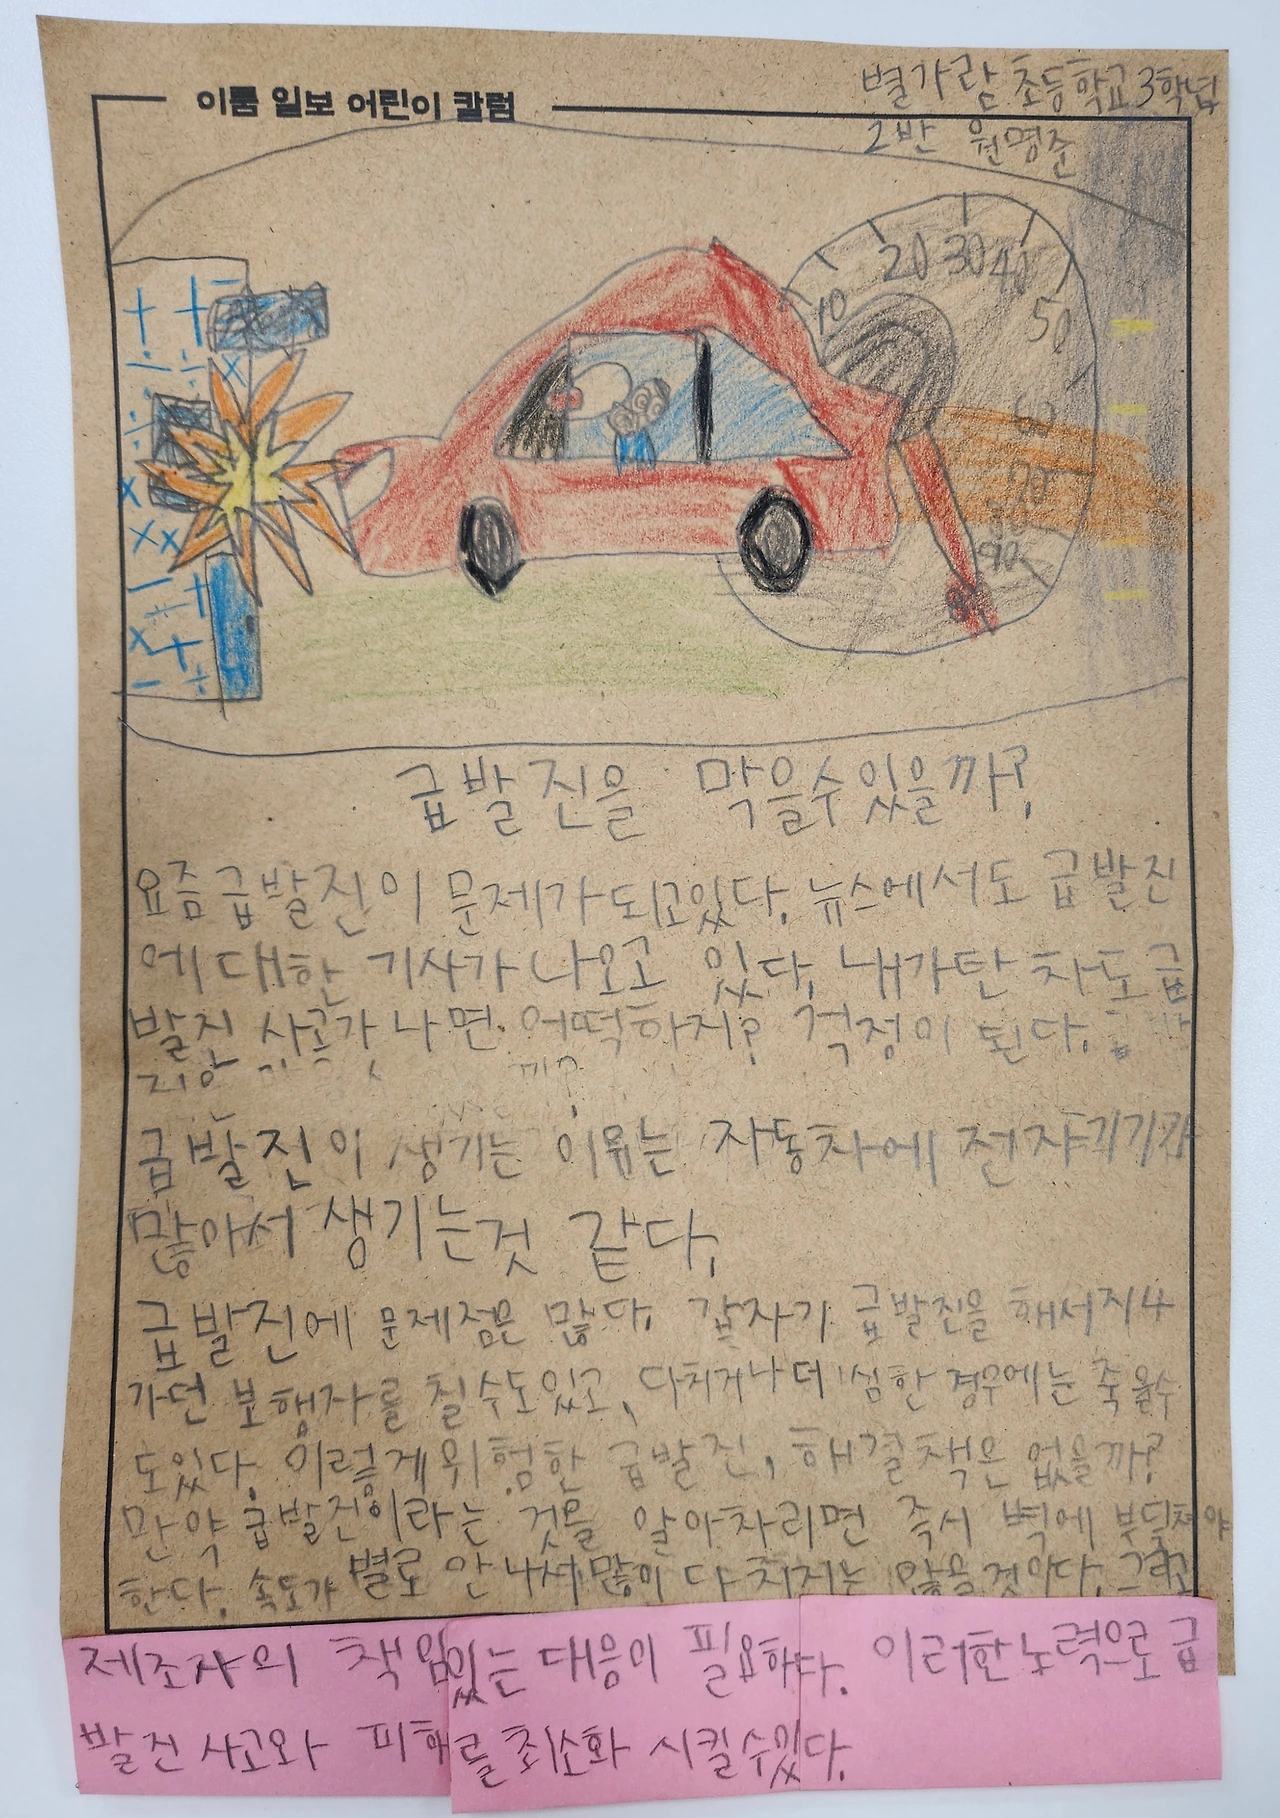 이룸 일보 어린이 칼럼
별가람 초등학교 3학년
2반 원명준
10 20 30 40 50 60 70 80 90
급발진을 막을수있을까?
요즘급발진이 문제가 되고있다. 뉴스에서도 급발진
에대한 기사가 나오고 있다. 내가탄 차도급
발진 사고가 나면 어떡하지? 걱정이 된다.
급발진이 생기는 이유는 자동차에 전자기기가
많아서 생기는것 같다.
급발진에 문제점은 많다. 갑자기 급발진을 해서지나
가던 보행자를 칠수도있고, 다치거나 더 심한 경우에는 죽을수
도있다. 이렇게위험한 급발진, 해결책은 없을까?
만약 급발진이라는 것을 알아차리면 즉시 벽에 부딪쳐야
한다. 속도가 별로 안 나서 많이 다치지는 않을것이다. 그리고
제조자의 책임있는 대응이 필요하다. 이러한노력으로급
발진 사고와 피해를 최소화 시킬수있다.